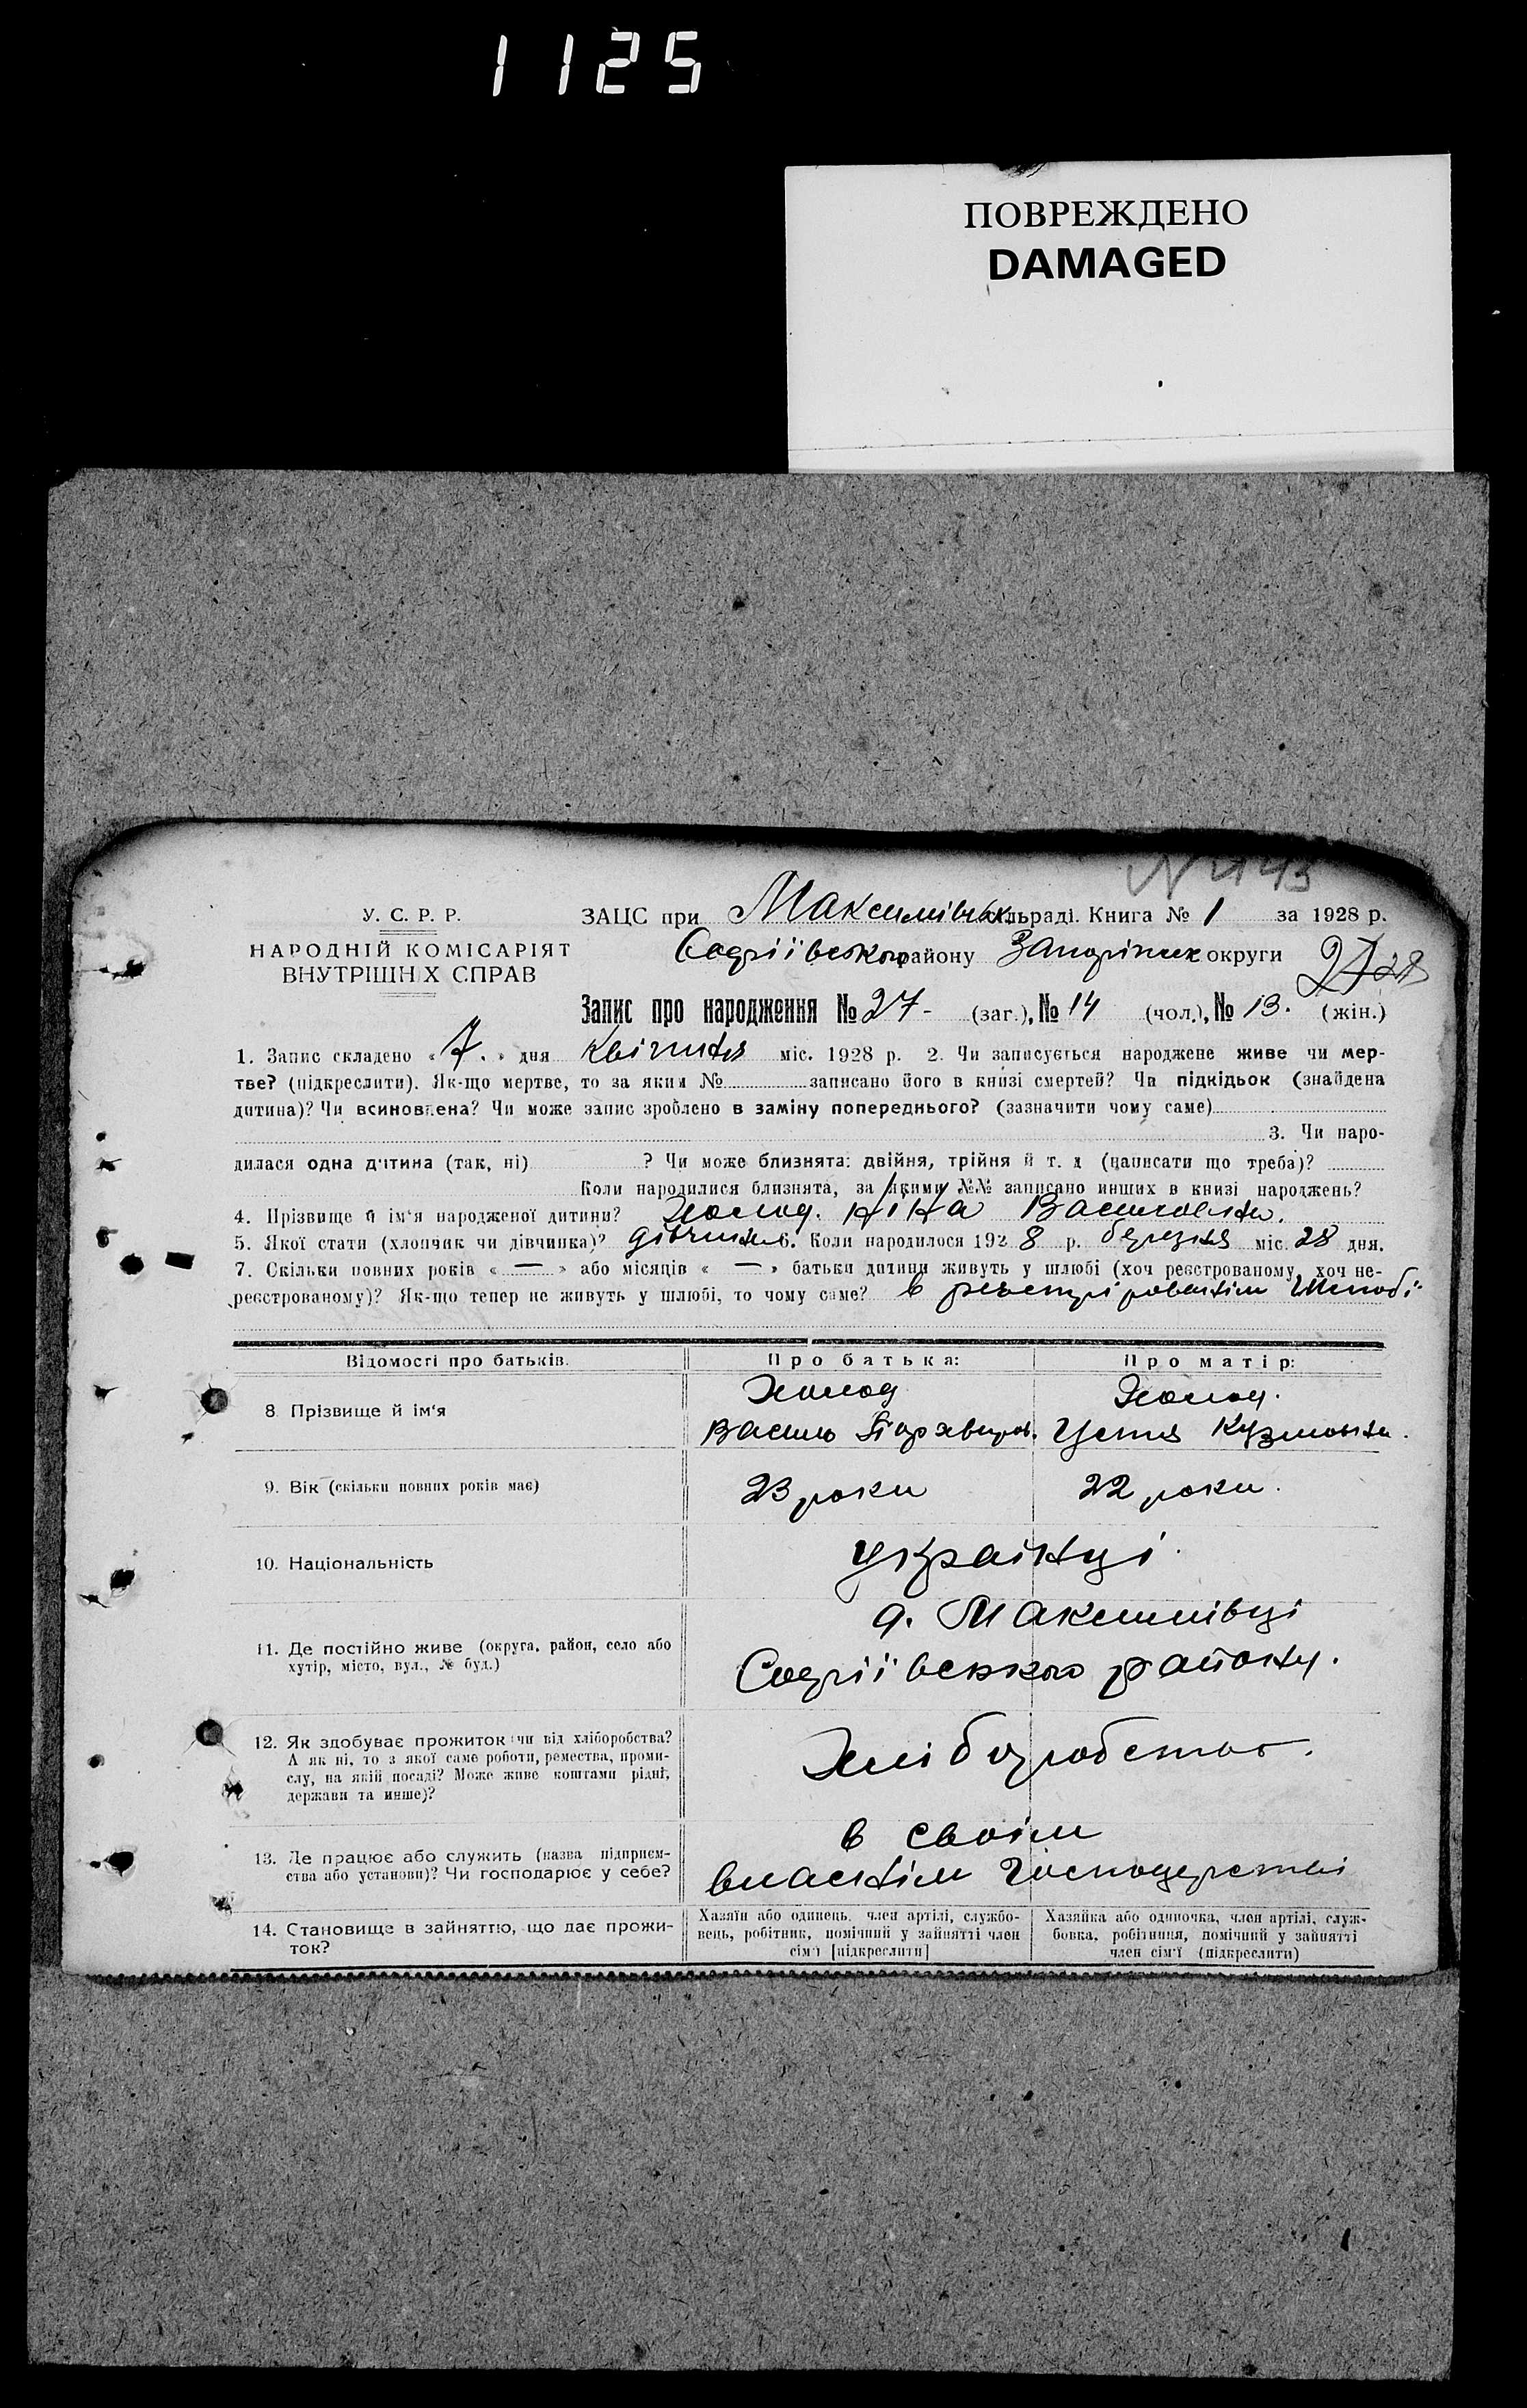 1125
ПОВРЕЖДЕНО
DAMAGED
У. С. Р. Р.
НАРОДНІЙ КОМІСАРІЯТ
ВНУТРІШНІХ СПРАВ
ЗАЦС при Максимівськ сільраді. Книга № 1 за 1928 р.
Софіївського району Запоріжск округи
Запис про народження № 27- (заг.), № 14 (чол.), № 13. (жін.)
1. Запис складено « 7. » дня квітня міс. 1928 р. 2. Чи записується народжене живе чи мер-
тве? (підкреслити). Як-що мертве, то за яким № записано його в книзі смертей? Чи підкідьок (знайдена
дитина)? Чи всиновлена? Чи може запис зроблено в заміну попереднього? (зазначити чому саме)
3. Чи наро-
дилася одна дитина (так, ні) ? Чи може близнята: двійня, трійня й т. д (написати що треба)?
Коли народилися близнята, за якими №№ записано инших в книзі народжень?
4. Прізвище й ім'я народженої дитини? Холод. Ніна Васильовна.
5. Якої стати (хлопчик чи дівчинка)? дівчина 6. Коли народилося 1928 р. березня міс. 28 дня.
7. Скільки повних років « — » або місяців « — » батьки дитини живуть у шлюбі (хоч реєстрованому, хоч не-
реєстрованому)? Як-що тепер не живуть у шлюбі, то чому саме? в реєстрірованім шлюбі
Відомості про батьків. Про батька: Про матір:
8 Прізвище й ім'я Холод Холод.
Василь Устя Кузмовна.
9. Вік (скільки повних років має) 23 роки 22 роки.
10. Національність українці.
11. Де постійно живе (округа, район, село або
хутір, місто, вул., № буд.)
с. Максимівці
Софіївського району.
12. Як здобуває прожиток чи від хліборобства?
А як ні, то з якої саме роботи, ремества, проми-
слу, на якій посаді? Може живе коштами рідні,
держави та инше)?
Хліборобством.
13. Де працює або служить (назва підприєм-
ства або установи)? Чи господарює у себе?
в своїм
власнім господарстві
14. Становище в зайняттю, що дає прожи-
ток?
Хазяїн або одинець, член артілі, службо-
вець, робітник, помічний у зайнятті член
сім'ї [підкреслити]
Хазяйка або одиночка, член артілі, служ-
бовка, робітниця, помічний у зайнятті
член сім'ї (підкреслити)